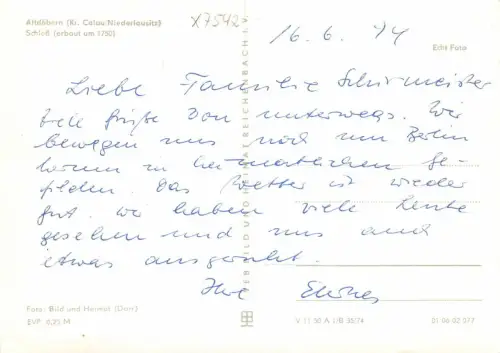 Altdöbern (Kr. Calau/Niederlausitz)
Schloß (erbaut um 1750)
X7542
16.6.74
Echt Foto
Liebe Familie Schirmeister
viele Grüße von unterwegs. Wir
bewegen uns noch um Berlin
herum in heimatlichen Ge-
filden. Das Wetter ist wieder
gut. Wir haben viele Leute
gesehen und uns auch
etwas ausgeruht.
Ihre
Foto: Bild und Heimat (Darr)
EVP 0,25 M
VEB BILD UND HEIMAT REICHENBACH I. V.
V 11 50 A 1/B 35/74
01 06 02 077